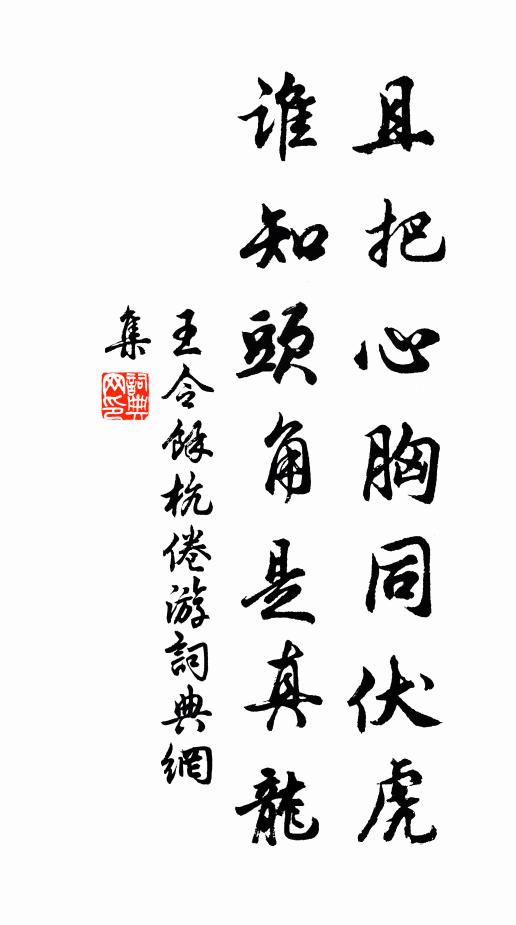 且把心胸同伏虎
誰知頭角是真龍
王令餘杭倦游詞典網
集
詞典网印